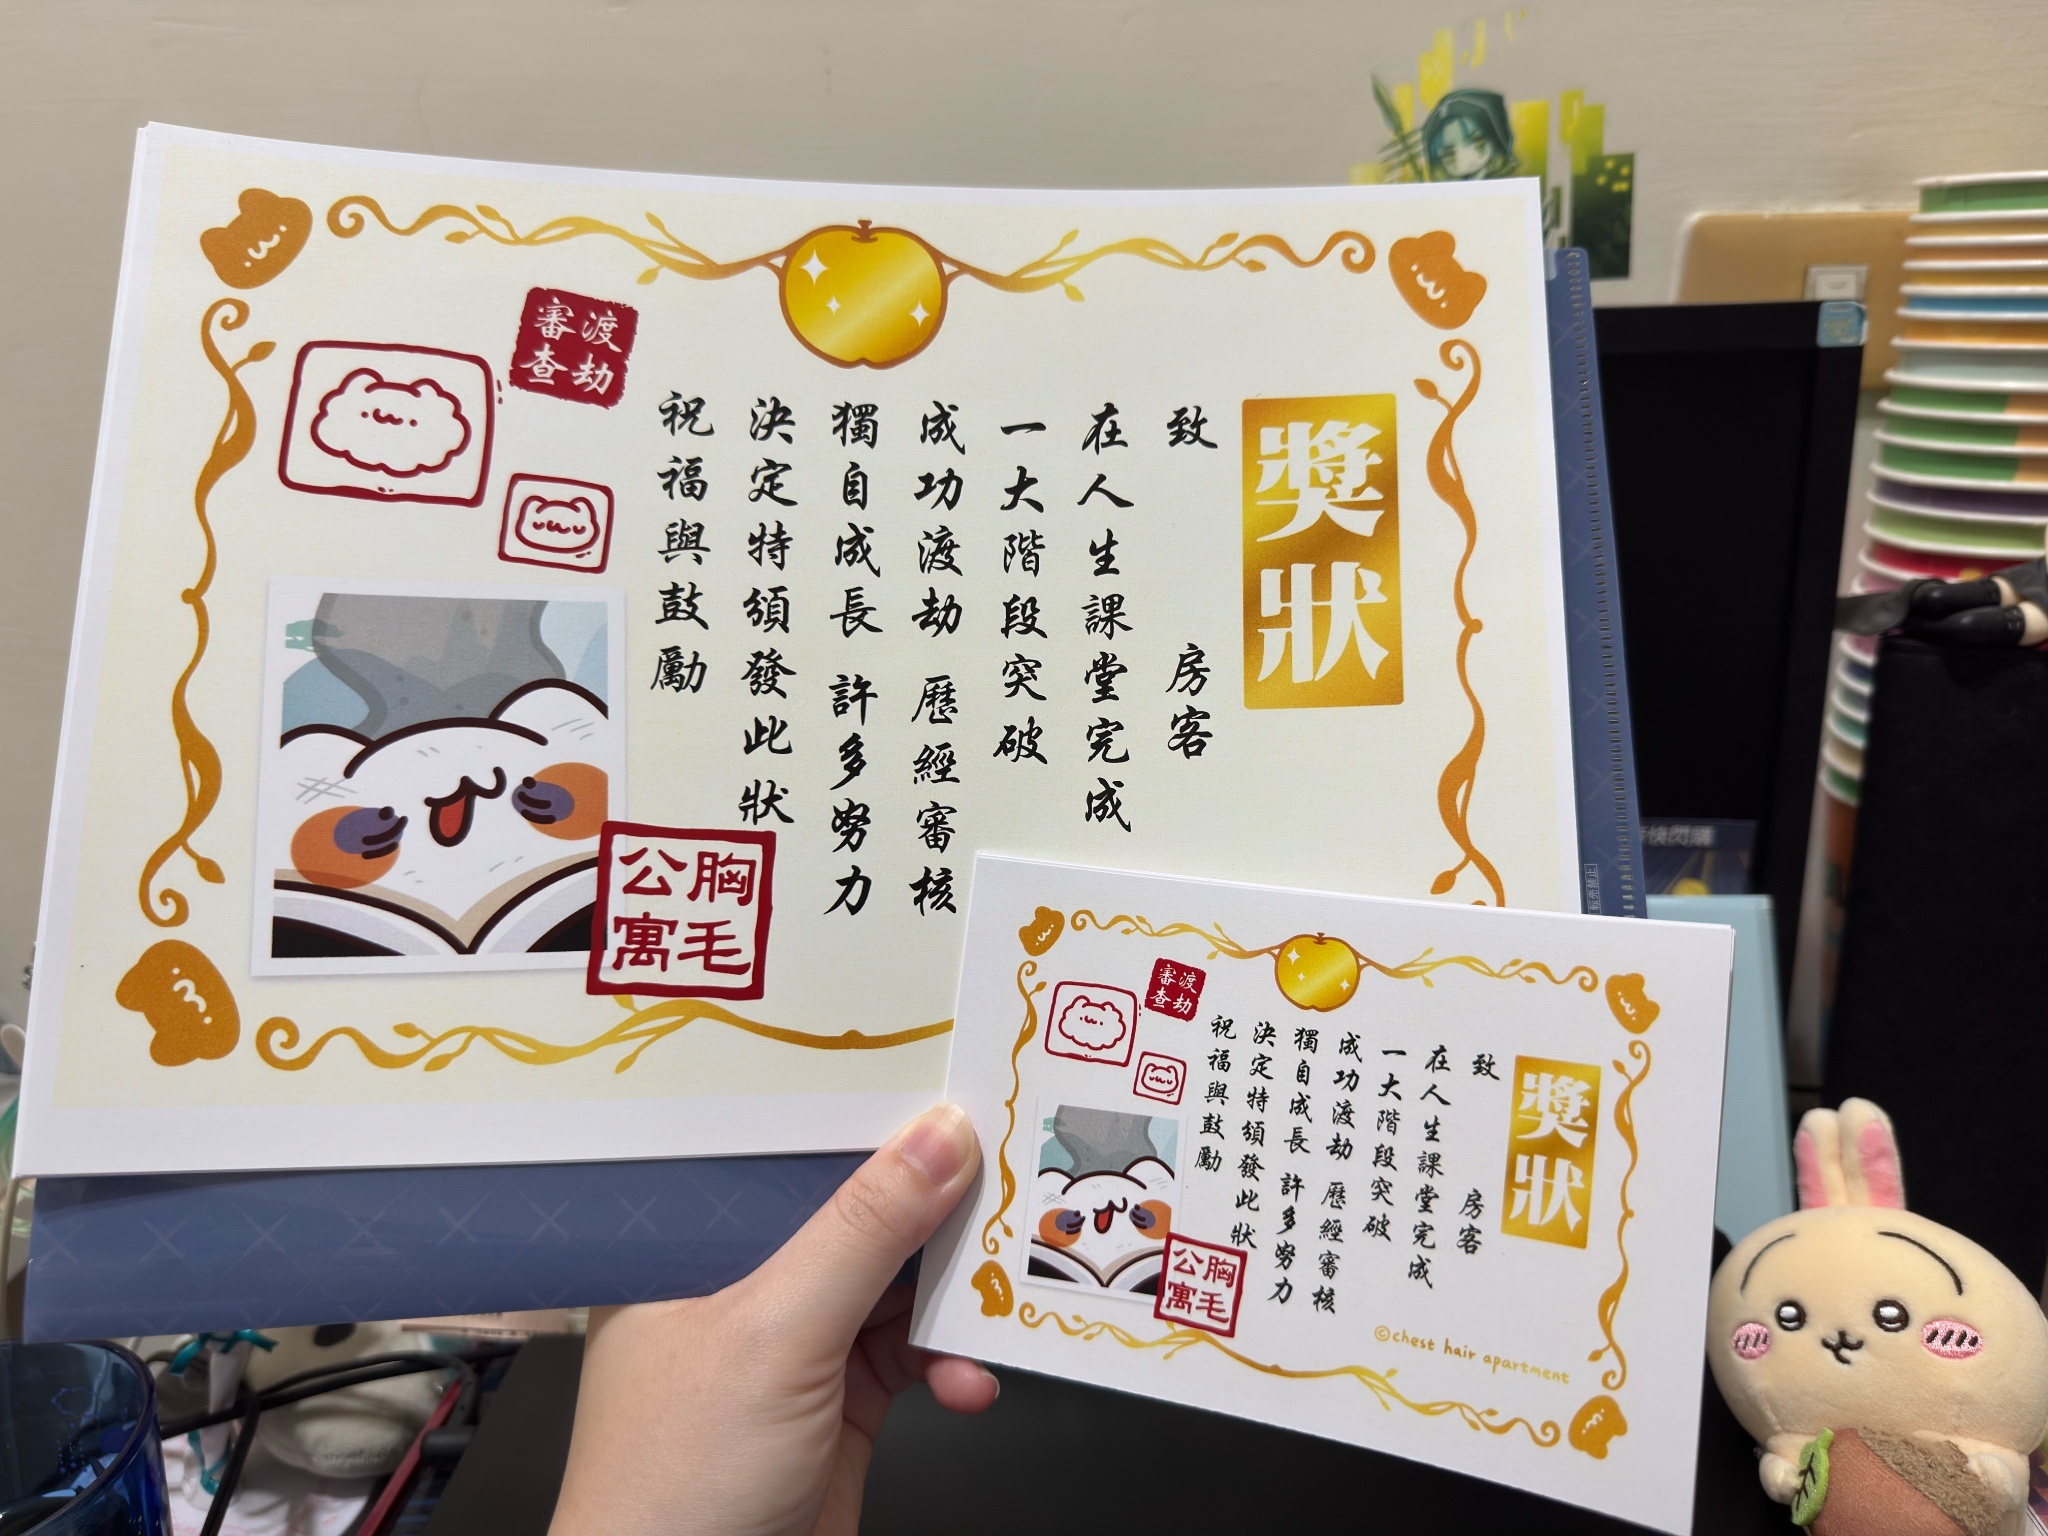 獎狀
致 房客
在人生課堂完成
一大階段突破
成功渡劫 歷經審核
獨自成長 許多努力
決定特頒發此狀
祝福與鼓勵
渡劫
審查
胸毛
公寓
獎狀
致 房客
在人生課堂完成
一大階段突破
成功渡劫 歷經審核
獨自成長 許多努力
決定特頒發此狀
祝福與鼓勵
渡劫
審查
胸毛
公寓
©chest hair apartment
転売禁止
快閃購